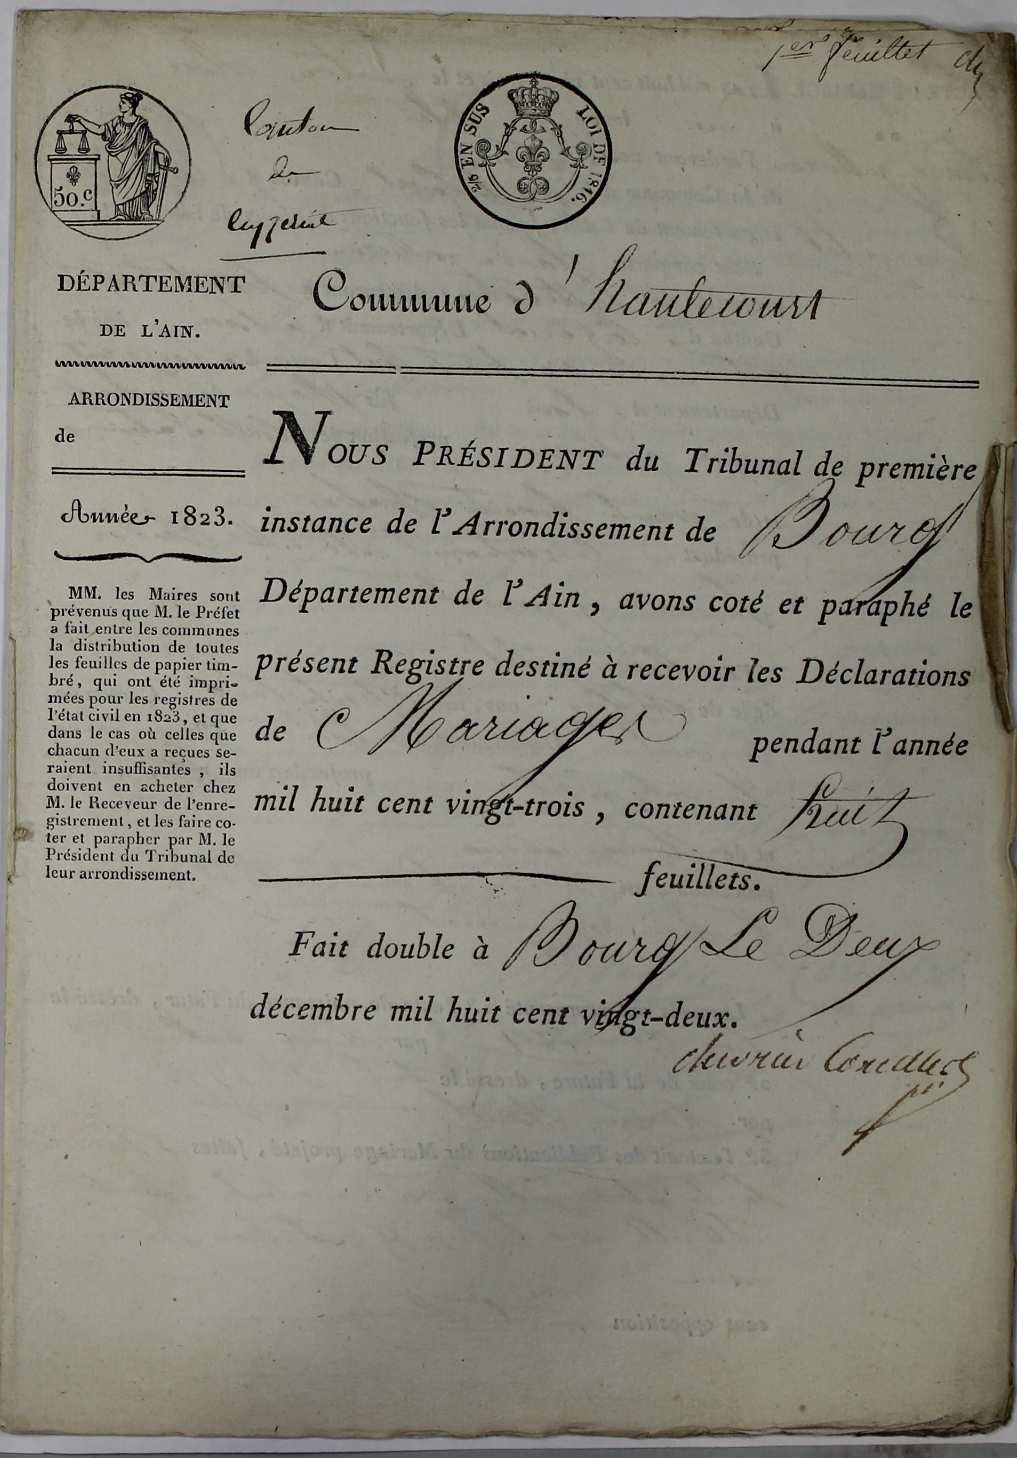 1er feuillet
50.c
2/6 EN SUS LOI DE 1816.
Canton
de
Ceyzeriat
DÉPARTEMENT
DE L'AIN.
Commune d'hautecourt
ARRONDISSEMENT
de
Année 1823.
MM. les Maires sont
prévenus que M. le Préfet
a fait entre les communes
la distribution de toutes
les feuilles de papier tim-
bré, qui ont été impri-
mées pour les registres de
l'état civil en 1823, et que
dans le cas où celles que
chacun d'eux a reçues se-
raient insuffisantes, ils
doivent en acheter chez
M. le Receveur de l'enre-
gistrement, et les faire co-
ter et parapher par M. le
Président du Tribunal de
leur arrondissement.
NOUS PRÉSIDENT du Tribunal de première
instance de l'Arrondissement de Bourg
Département de l'Ain, avons coté et paraphé le
présent Registre destiné à recevoir les Déclarations
de Mariages pendant l'année
mil huit cent vingt-trois, contenant huit
feuillets.
Fait double à Bourg Le Deux
décembre mil huit cent vingt-deux.